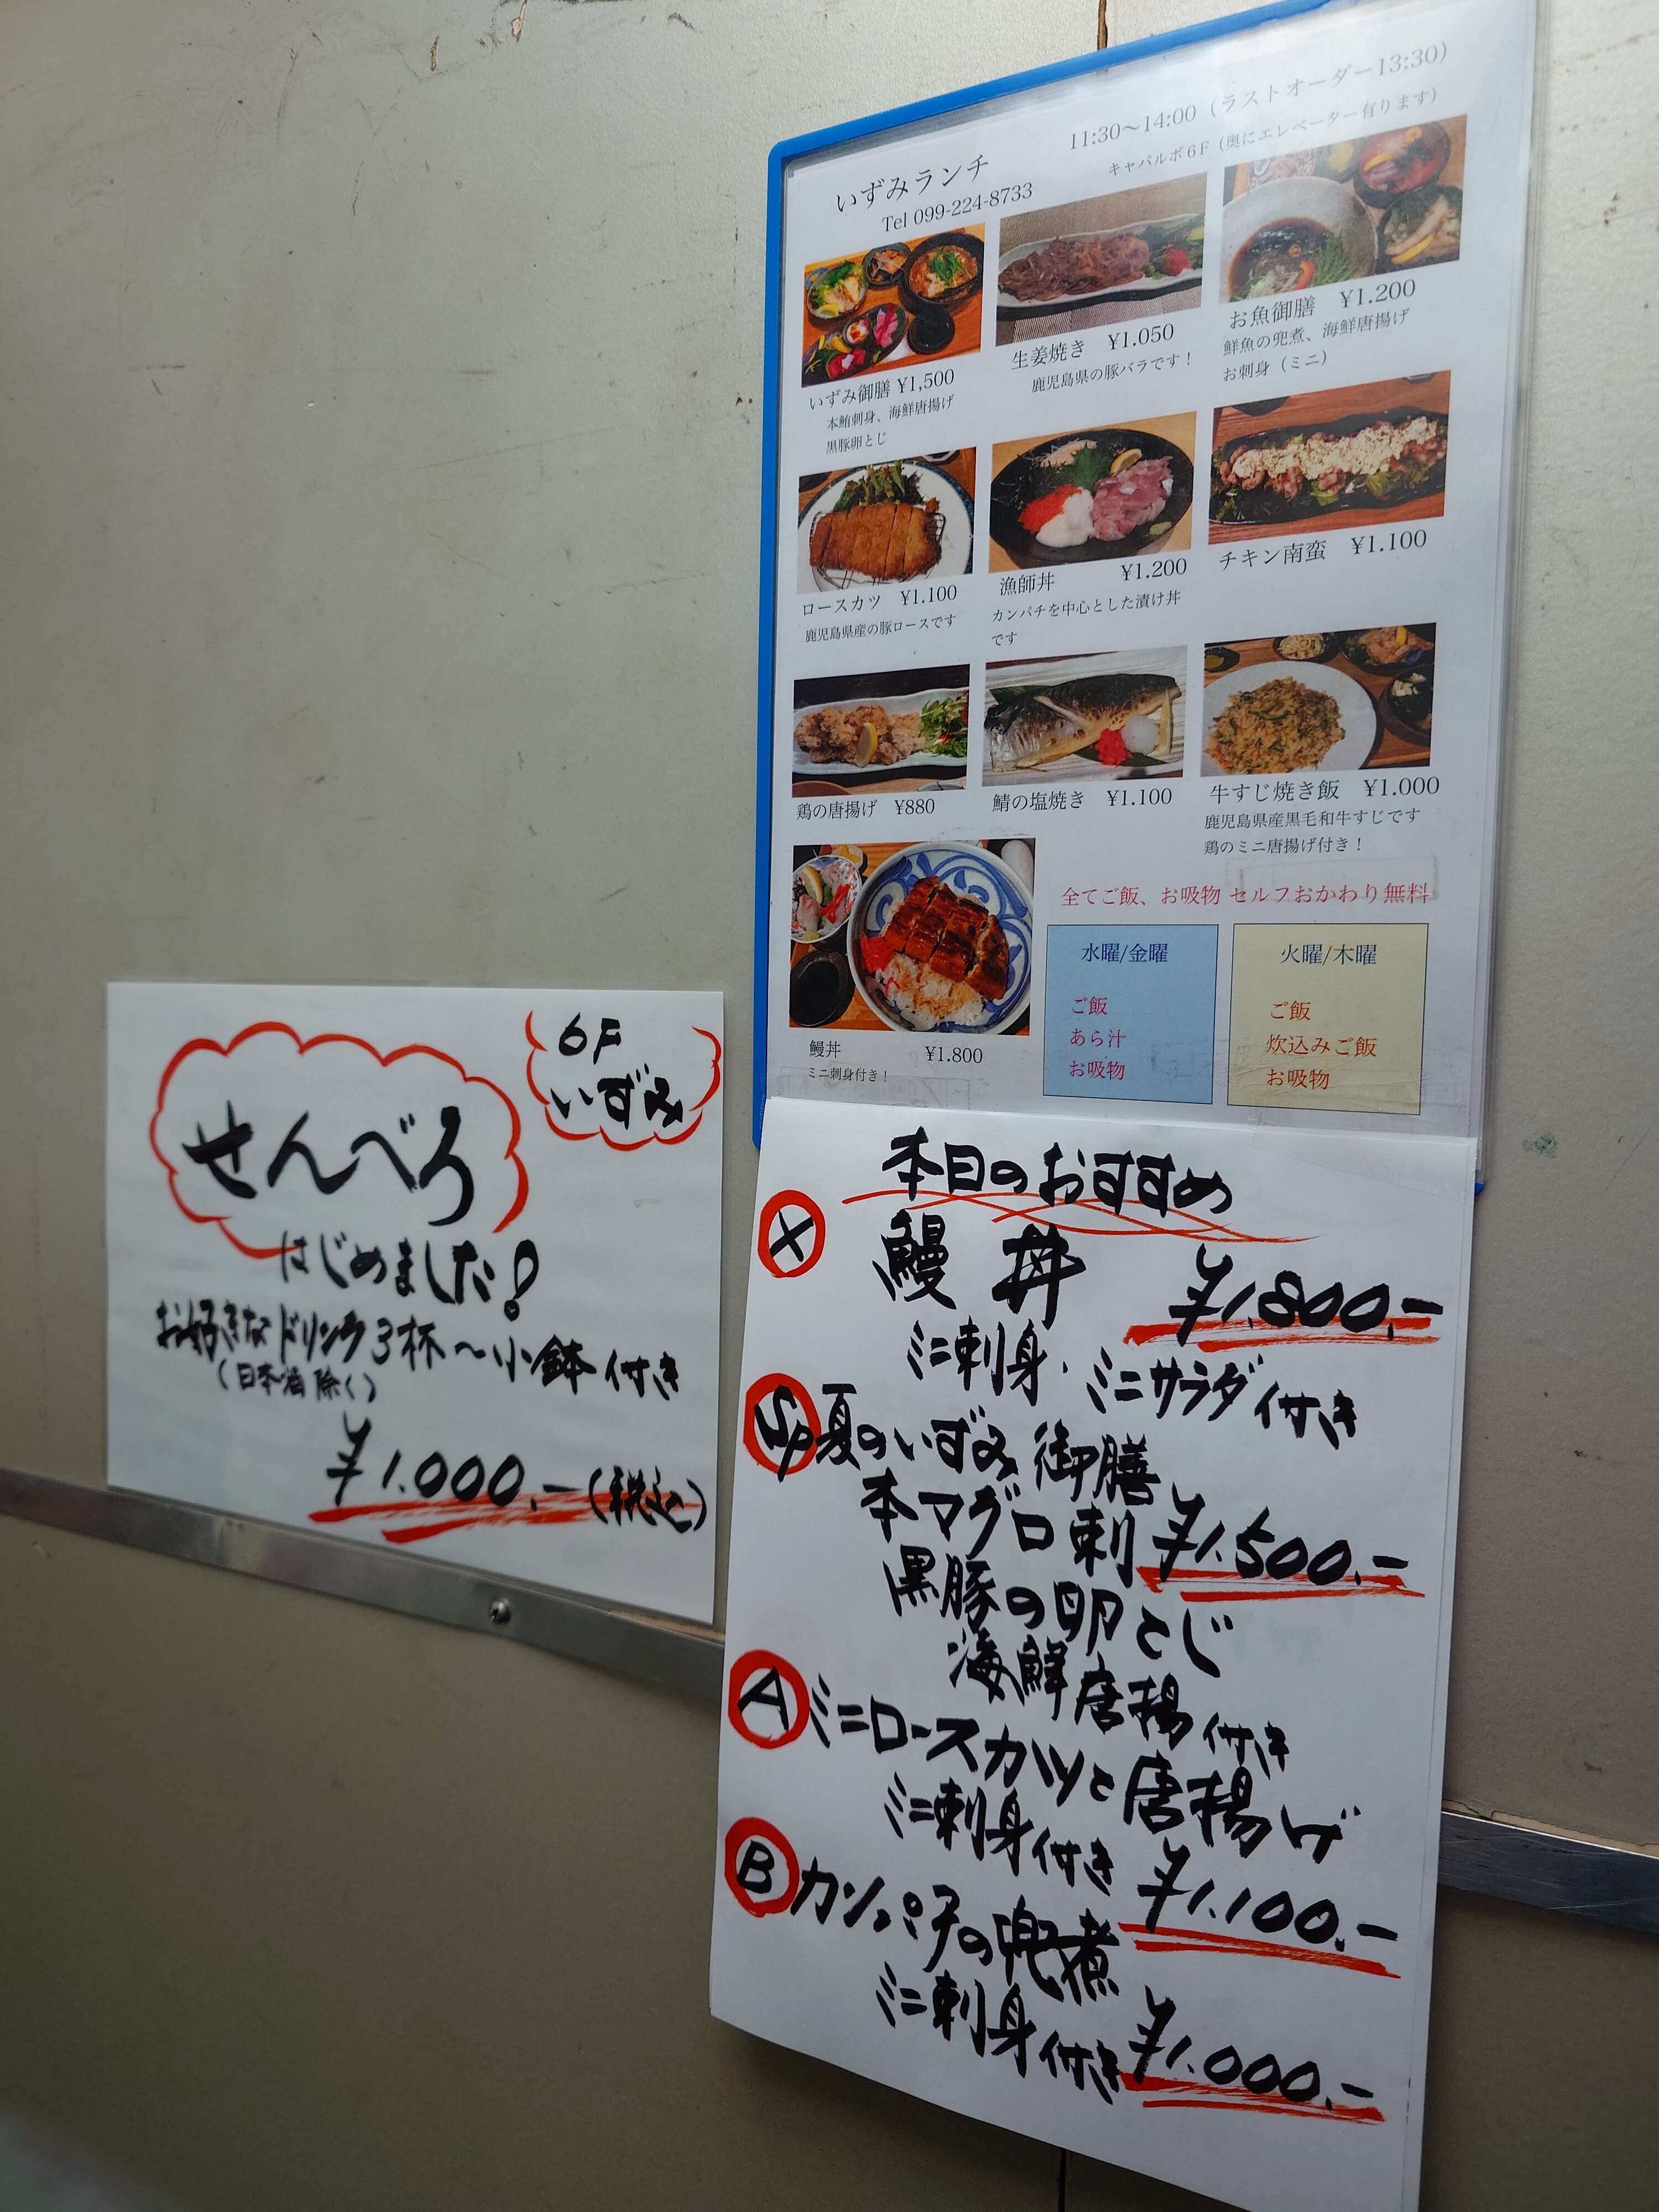 いずみランチ
Tel 099-224-8733
11:30〜14:00（ラストオーダー13:30）
キャパルボ６F（奥にエレベーター有ります）
いずみ御膳 ¥1,500
本鮪刺身、海鮮唐揚げ
黒豚卵とじ
生姜焼き ¥1.050
鹿児島県の豚バラです！
お魚御膳 ¥1.200
鮮魚の兜煮、海鮮唐揚げ
お刺身（ミニ）
ロースカツ ¥1.100
鹿児島県産の豚ロースです
漁師丼 ¥1.200
カンパチを中心とした漬け丼
です
チキン南蛮 ¥1.100
鶏の唐揚げ ¥880
鯖の塩焼き ¥1.100
牛すじ焼き飯 ¥1.000
鹿児島県産黒毛和牛すじです
鶏のミニ唐揚げ付き！
鰻丼 ¥1.800
ミニ刺身付き！
全てご飯、お吸物 セルフおかわり無料
水曜/金曜
ご飯
あら汁
お吸物
火曜/木曜
ご飯
炊込みご飯
お吸物
6F
いずみ
せんべろ
はじめました！
お好きなドリンク3杯〜小鉢付き
（日本酒除く）
¥1.000.-（税込）
本日のおすすめ
X 鰻丼 ¥1.800.-
ミニ刺身・ミニサラダ付き
Sp 夏のいずみ御膳
本マグロ刺 ¥1.500.-
黒豚の卵とじ
海鮮唐揚付き
A ミニロースカツと唐揚げ
ミニ刺身付き ¥1.100.-
B カンパチの兜煮
ミニ刺身付き ¥1.000.-